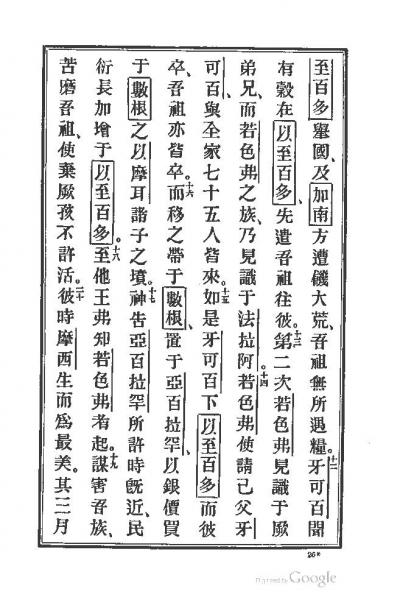 至百多舉國、及加南方遭饑大荒、吾祖無所遇糧。十二牙可百聞
有穀在以至百多、先遣吾祖往彼。十三第二次若色弗見識于厥
弟兄、而若色弗之族、乃見識于法拉阿。十四若色弗使請己父牙
可百、與全家七十五人皆來。十五如是牙可百下以至百多而彼
卒、吾祖亦皆卒。十六而移之帶于數根、置于亞百拉罕以銀價買
于數根之以摩耳諸子之墳。十七神告亞百拉罕所許時旣近、民
衍長加增于以至百多。十八至他王弗知若色弗者起。十九謀害吾族、
苦磨吾祖、使棄厥孩不許活。二十彼時摩西生而爲最美。其三月
26*
Digitized by Google